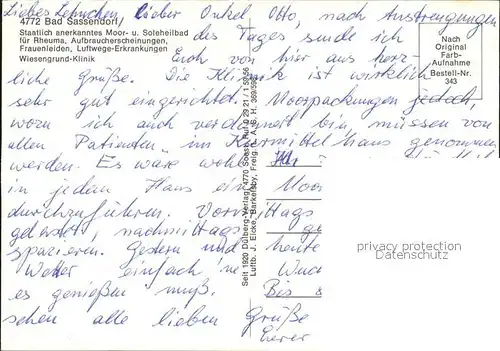 Liebes Lehnchen, lieber Onkel Otto, nach Anstrengungen
4772 Bad Sassendorf/
Staatlich anerkanntes Moor- u. Soleheilbad
für Rheuma, Aufbraucherscheinungen,
Frauenleiden, Luftwege-Erkrankungen
Wiesengrund-Klinik
des Tages sende ich
Euch von hier aus herz-
Nach
Original
Farb-
Aufnahme
Bestell-Nr.
343
liche Grüße. Die Klinik ist wirklich
sehr gut eingerichtet. Moorpackungen jedoch,
wozu ich auch verdonnert bin, müssen von
allen Patienten im Kurmittelhaus genommen
werden. Es wäre wohl
in jedem Haus ein Moor
durchzuführen. Vormittags
getestet, nachmittags
spazieren. Gestern und heute
Wetter einfach 'ne
es genießen muß. Bis
sehen alle lieben Grüße
Eurer
Seit 1920 Dülberg-Verlag, 4770 Soest, Ruf 0 29 21 / 1 56 56
Luftb. J. Eicke, Barkelsby, Freig. R.
privacy protection
Datenschutz